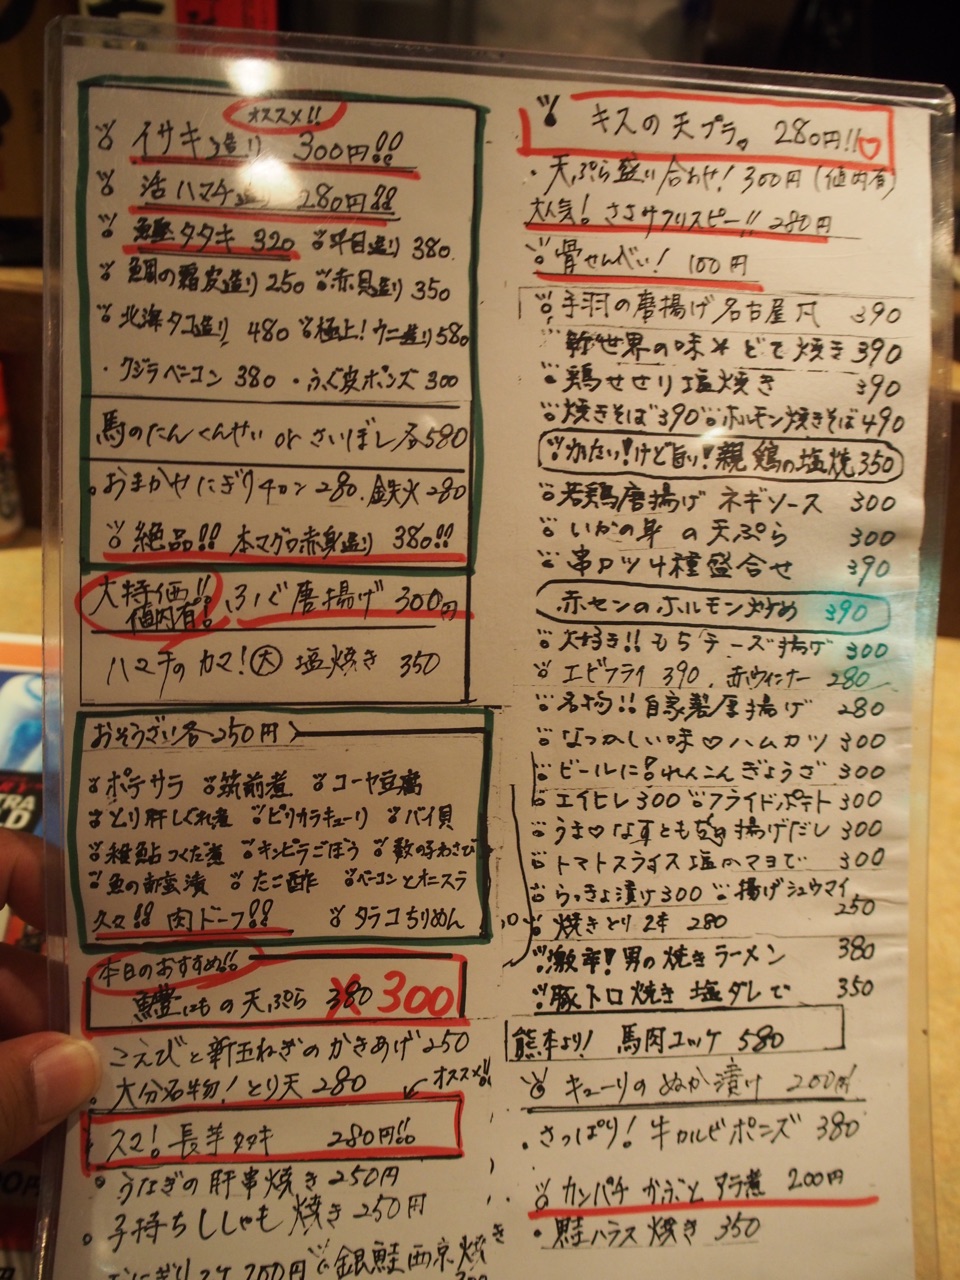 オススメ!!
イサキ造り 300円!!
活ハマチ造り 280円!!
鰹タタキ 320 平目造り 380
鯛の霜皮造り 250 赤貝造り 350
北海タコ造り 480 極上!ウニ造り 580
・クジラベーコン 380 ・ふぐ皮ポンズ 300
馬のたんくんせい or さいぼし 各580
・おまかせにぎり4カン 280. 鉄火 280
絶品!! 本マグロ赤身造り 380!!
大特価!! 値内有! ふぐ唐揚げ 300円
ハマチのカマ!大 塩焼き 350
おそうざい各250円
ポテサラ 筑前煮 コーヤ豆腐
とり肝しぐれ煮 ピリカラキューリ バイ貝
稚鮎つくだ煮 キンピラごぼう 数の子わさび
魚の南蛮漬 たこ酢 ベーコンとオニスラ
久々!! 肉ドーフ!! タラコちりめん
本日のおすすめ!!
鱧にもの天ぷら 380 300
こえびと新玉ねぎのかきあげ 250
・大分名物!とり天 280 オススメ!!
スマ!長芋タタキ 280円!!
・うなぎの肝串焼き 250円
・子持ちししゃも焼き 250円
銀鮭西京焼き
キスの天プラ。 280円!!♡
・天ぷら盛い合わせ! 300円(値内有)
大人気! ささみクリスピー!! 280円
骨せんべい! 100円
手羽の唐揚げ名古屋風 390
新世界の味 どて焼き 390
鶏せせり塩焼き 390
焼きそば 390 ホルモン焼きそば 490
かたい!けど旨い!親鶏の塩焼 350
若鶏唐揚げ ネギソース 300
いかの耳の天ぷら 300
串カツ4種盛合せ 390
赤センのホルモン炒め 390
大好き!!もちチーズ揚げ 300
エビフライ 390. 赤ウィンナー 280
名物!!自家製厚揚げ 280
なつかしい味♡ハムカツ 300
ビールに!れんこんぎょうざ 300
エイヒレ 300 フライドポテト 300
うま♡なすともち揚げだし 300
トマトスライス塩orマヨで 300
らっきょ漬け 300 揚げシュウマイ 250
焼きとり 2本 280
激辛!男の焼きラーメン 380
豚トロ焼き 塩ダレで 350
熊本より! 馬肉ユッケ 580
キューリのぬか漬け 200円
・さっぱり!牛カルビポンズ 380
カンパチ かぶとアラ煮 200円
・鮭ハラス焼き 350